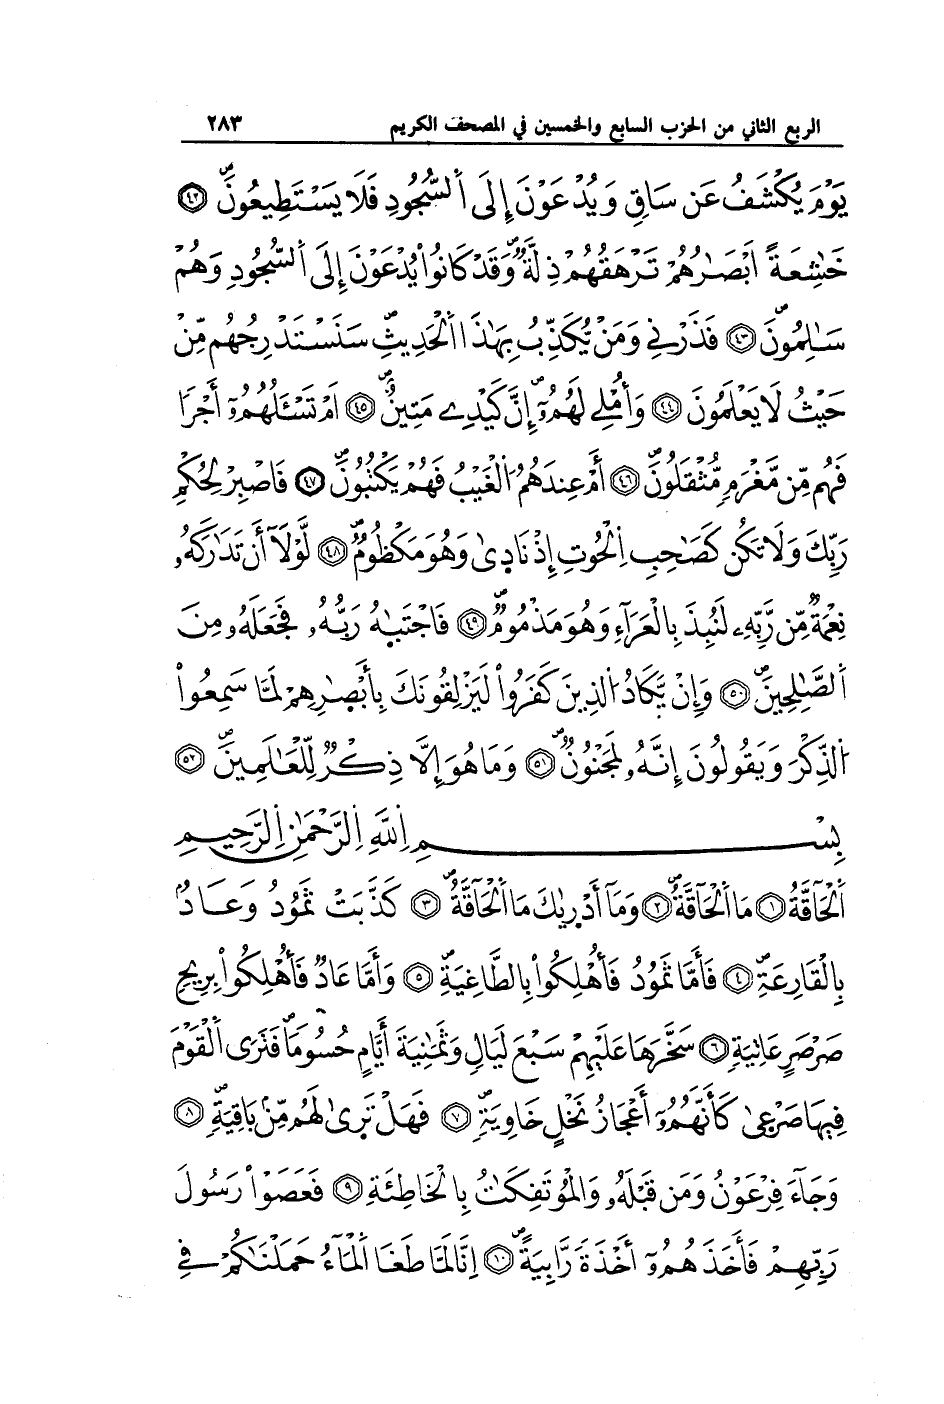 الربع الثاني من الحزب السابع والخمسين في المصحف الكريم ٢٨٣
يَوْمَ يُكْشَفُ عَن سَاقٍ وَيُدْعَوْنَ إِلَى اَلسُّجُودِ فَلَا يَسْتَطِيعُونَ ٤٢
خَٰشِعَةً اَبْصَٰرُهُمْ تَرْهَقُهُمْ ذِلَّةٌ وَقَدْ كَانُواْ يُدْعَوْنَ إِلَى اَلسُّجُودِ وَهُمْ
سَٰلِمُونَ ٤٣ فَذَرْنِے وَمَنْ يُّكَذِّبُ بِهَٰذَا اَلْحَدِيثِ سَنَسْتَدْرِجُهُم مِّنْ
حَيْثُ لَا يَعْلَمُونَ ٤٤ وَأُمْلِے لَهُمُۥٓ إِنَّ كَيْدِے مَتِينٌ ٤٥ اَمْ تَسْـَٔلُهُمُۥٓ أَجْرًا
فَهُم مِّن مَّغْرَمٍ مُّثْقَلُونَ ٤٦ أَمْ عِندَهُمُ اُلْغَيْبُ فَهُمْ يَكْتُبُونَ ٤٧ فَاصْبِرْ لِحُكْمِ
رَبِّكَ وَلَا تَكُن كَصَٰحِبِ اِلْحُوتِ إِذْ نَادِىٰ وَهُوَ مَكْظُومٌ ٤٨ لَّوْلَآ أَن تَدَٰرَكَهُۥ
نِعْمَةٌ مِّن رَّبِّهِۦ لَنُبِذَ بِالْعَرَآءِ وَهُوَ مَذْمُومٌ ٤٩ فَاجْتَبَٰهُ رَبُّهُۥ فَجَعَلَهُۥ مِنَ
اَلصَّٰلِحِينَ ٥٠ وَإِنْ يَّكَادُ اُلذِينَ كَفَرُواْ لَيَزْلِقُونَكَ بِأَبْصِٰرِهِمْ لَمَّا سَمِعُواْ
اُلذِّكْرَ وَيَقُولُونَ إِنَّهُۥ لَمَجْنُونٌ ٥١ وَمَا هُوَ إِلَّا ذِكْرٌ لِّلْعَٰلَمِينَ ٥٢
بِسْمِ اِللَّهِ اِلرَّحْمَٰنِ اِلرَّحِيمِ
اَلْحَآقَّةُ ١ مَا اَلْحَآقَّةُ ٢ وَمَآ أَدْرِىٰكَ مَا اَلْحَآقَّةُ ٣ كَذَّبَتْ ثَمُودُ وَعَادٌ
بِالْقَارِعَةِ ٤ فَأَمَّا ثَمُودُ فَأُهْلِكُواْ بِالطَّاغِيَةِ ٥ وَأَمَّا عَادٌ فَأُهْلِكُواْ بِرِيحٍ
صَرْصَرٍ عَاتِيَةٍ ٦ سَخَّرَهَا عَلَيْهِمْ سَبْعَ لَيَالٍ وَثَمَٰنِيَةَ أَيَّامٍ حُسُومًا فَتَرَى اَلْقَوْمَ
فِيهَا صَرْعِىٰ كَأَنَّهُمُۥٓ أَعْجَازُ نَخْلٍ خَاوِيَةٍ ٧ فَهَلْ تَرِىٰ لَهُم مِّنۢ بَاقِيَةٍ ٨
وَجَآءَ فِرْعَوْنُ وَمَن قَبْلَهُۥ وَالْمُوتَفِكَٰتُ بِالْخَاطِئَةِ ٩ فَعَصَوْاْ رَسُولَ
رَبِّهِمْ فَأَخَذَهُمُۥٓ أَخْذَةً رَّابِيَةً ١٠ اِنَّا لَمَّا طَغَا اَلْمَآءُ حَمَلْنَٰكُمْ فِے